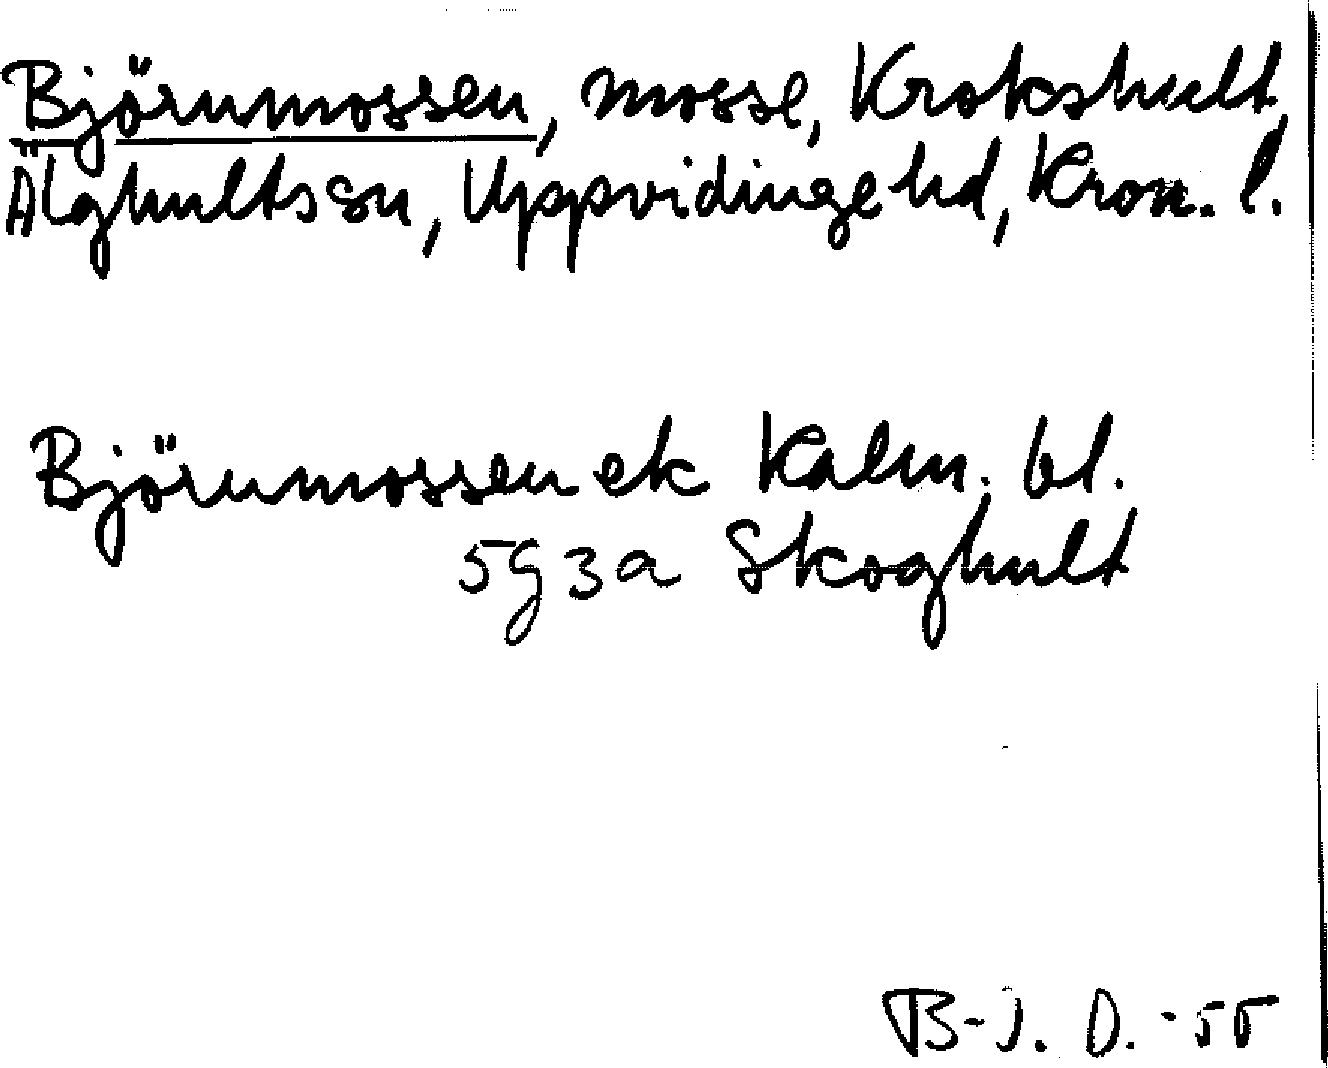 Björnmossen, mosse, Krokshult,
Älghults sn, Uppvidinge hd, Kron. l.
Björnmossen ek Kalm. bl.
5g3a Skoghult
B-J. D. -55